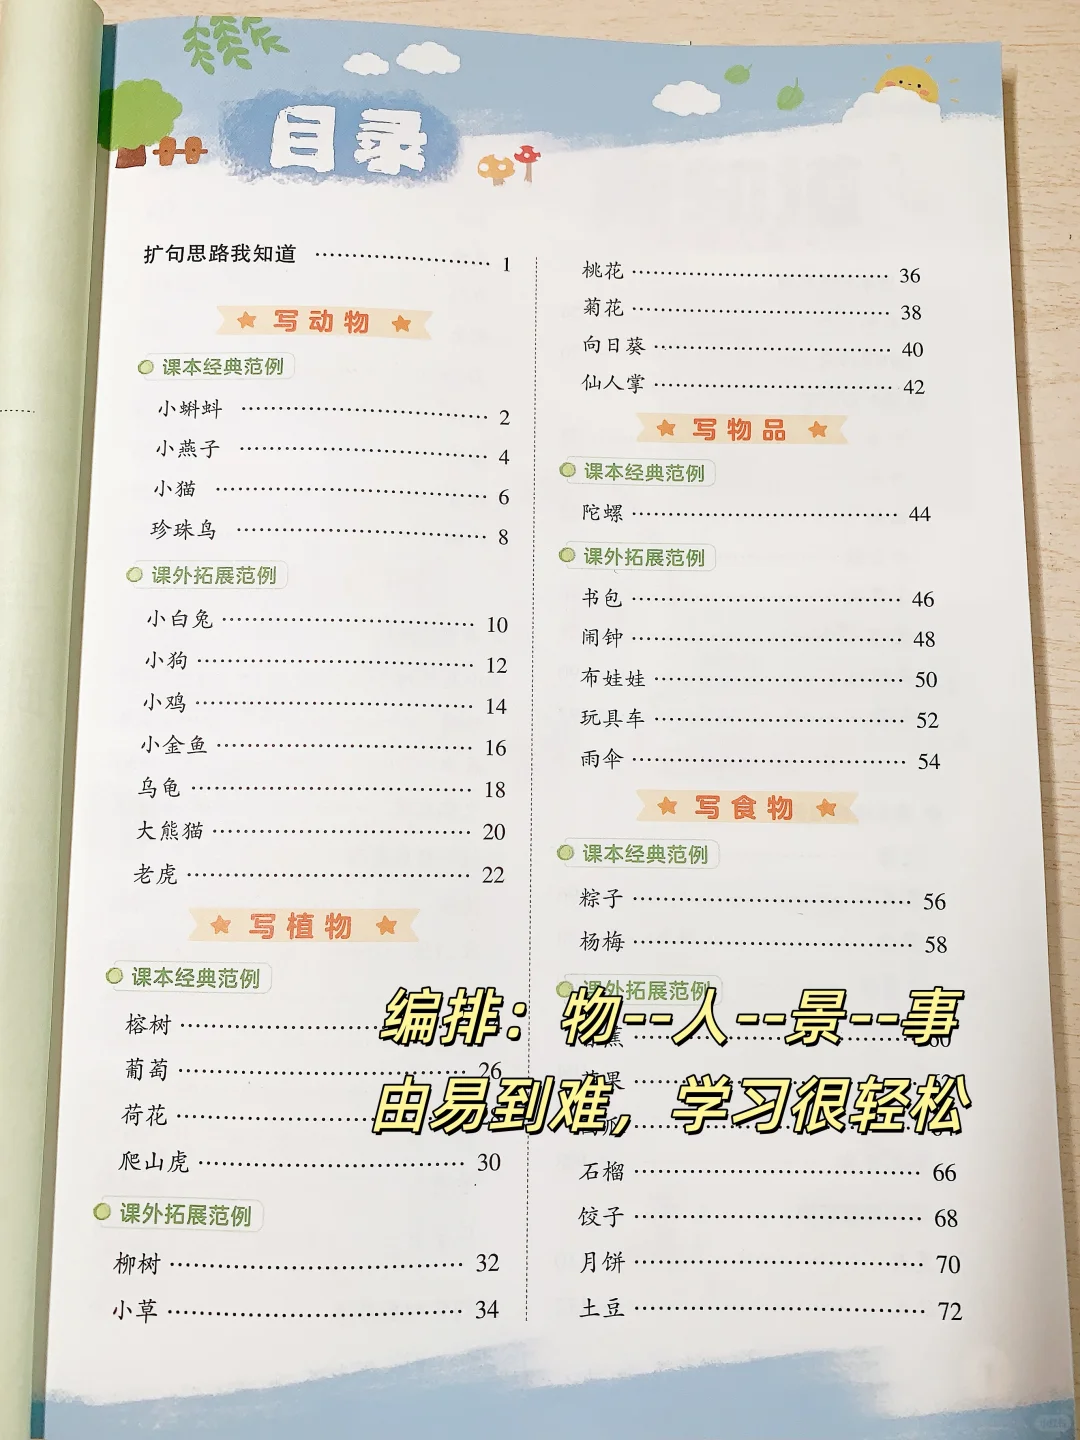 目录
扩句思路我知道 1
写动物
课本经典范例
小蝌蚪 2
小燕子 4
小猫 6
珍珠鸟 8
课外拓展范例
小白兔 10
小狗 12
小鸡 14
小金鱼 16
乌龟 18
大熊猫 20
老虎 22
写植物
课本经典范例
榕树
葡萄 26
荷花
爬山虎 30
课外拓展范例
柳树 32
小草 34
桃花 36
菊花 38
向日葵 40
仙人掌 42
写物品
课本经典范例
陀螺 44
课外拓展范例
书包 46
闹钟 48
布娃娃 50
玩具车 52
雨伞 54
写食物
课本经典范例
粽子 56
杨梅 58
课外拓展范例
蕉 60
果
石榴 66
饺子 68
月饼 70
土豆 72
编排：物--人--景--事
由易到难，学习很轻松